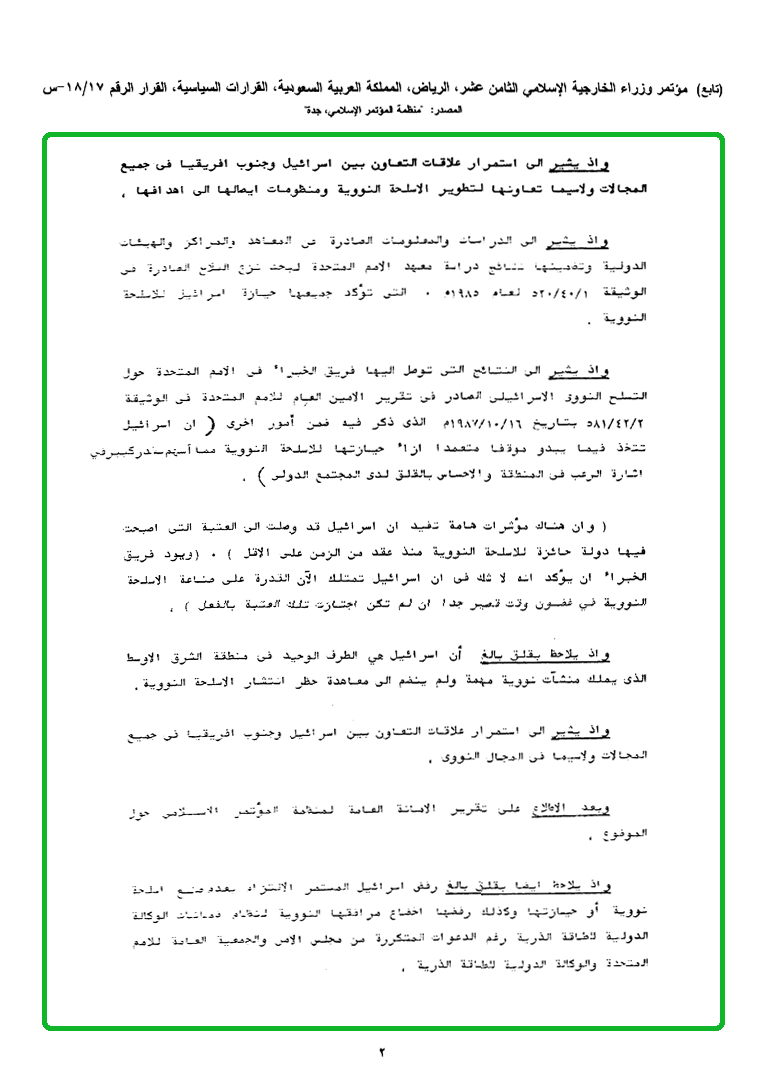 (تابع) مؤتمر وزراء الخارجية الإسلامي الثامن عشر، الرياض، المملكة العربية السعودية، القرارات السياسية، القرار الرقم ١٨/١٧-س
المصدر: "منظمة المؤتمر الإسلامي، جدة"
واذ يشير الى استمرار علاقات التعاون بين اسرائيل وجنوب افريقيا فى جميع
المجالات ولاسيما تعاونها لتطوير الاسلحة النووية ومنظومات ايصالها الى اهدافها ،
واذ يشير الى الدراسات والمعلومات الصادرة عن المعاهد والمراكز والهيئات
الدولية وتضمينها نتائج دراسة معهد الامم المتحدة لبحث نزع السلاح الصادرة فى
الوثيقة ٥٢٠/٤٠/١ لعام ١٩٨٥م ٠ التى تؤكد جميعها حيازة اسرائيل للاسلحة
النووية ،
واذ يشير الى النتائج التى توصل اليها فريق الخبراء فى الامم المتحدة حول
التسلح النووى الاسرائيلى الصادر فى تقرير الامين العام للامم المتحدة فى الوثيقة
٥٨١/٤٢/٢ بتاريخ ١٩٨٧/١٠/١٦م الذى ذكر فيه فمن أمور اخرى ( ان اسرائيل
تتخذ فيما يبدو موقفا متعمدا ازاء حيازتها للاسلحة النووية مما أسهم بقدر كبير في
اشارة الرعب فى المنطقة والاحساس بالقلق لدى المجتمع الدولى ) ،
( وان هناك مؤشرات هامة تفيد ان اسرائيل قد وصلت الى العتبة التى اصبحت
فيها دولة حائزة للاسلحة النووية منذ عقد من الزمن على الاقل ) ٠ (ويود فريق
الخبراء ان يؤكد انه لا شك فى ان اسرائيل تمتلك الآن القدرة على صناعة الاسلحة
النووية في غضون وقت قصير جدا ان لم تكن اجتازت تلك العتبة بالفعل ) ،
واذ يلاحظ بقلق بالغ أن اسرائيل هي الطرف الوحيد فى منطقة الشرق الاوسط
الذى يملك منشآت نووية مهمة ولم ينضم الى معاهدة حظر انتشار الاسلحة النووية،
واذ يشير الى استمرار علاقات التعاون بين اسرائيل وجنوب افريقيا فى جميع
المجالات ولاسيما فى المجال النووى ،
وبعد الاطلاع على تقرير الامانة العامة لمنظمة المؤتمر الاسلامى حول
الموضوع ،
واذ يلاحظ ايضا بقلق بالغ رفض اسرائيل المستمر الالتزام بعدم صنع اسلحة
نووية أو حيازتها وكذلك رفضها اخضاع مرافقها النووية لنظام ضمانات الوكالة
الدولية للطاقة الذرية رغم الدعوات المتكررة من مجلس الامن والجمعية العامة للامم
المتحدة والوكالة الدولية للطاقة الذرية ،
٢